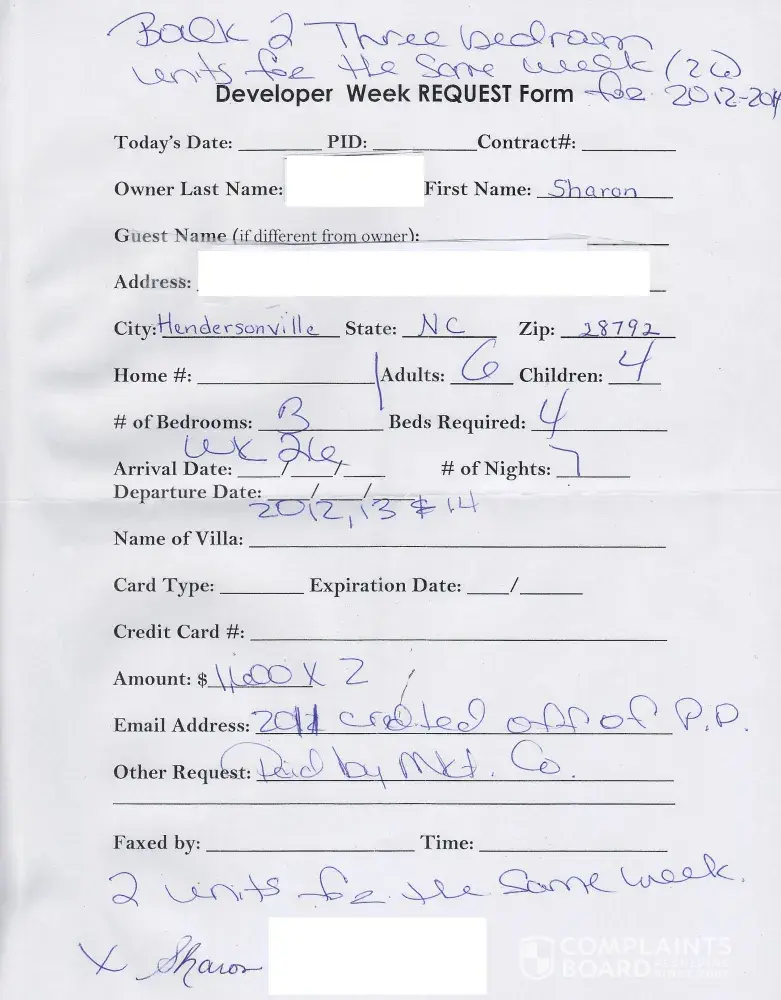 Book 2 Three bedroom
units for the same week (26)
Developer Week REQUEST Form for 2012-2014
Today's Date: PID: Contract#:
Owner Last Name: First Name: Sharon
Guest Name (if different from owner):
Address:
City: Hendersonville State: NC Zip: 28792
Home #: Adults: 6 Children: 4
# of Bedrooms: 3 Beds Required: 4
wk 26
Arrival Date: / / # of Nights: 7
Departure Date: / /
2012, 13 & 14
Name of Villa:
Card Type: Expiration Date: /
Credit Card #:
Amount: $ X 2
Email Address: 2011 credited off of P.D.
Other Request: Paid by Mkt. Co.
Faxed by: Time:
2 units for the same week.
X Sharon
COMPLAINTS
BOARD